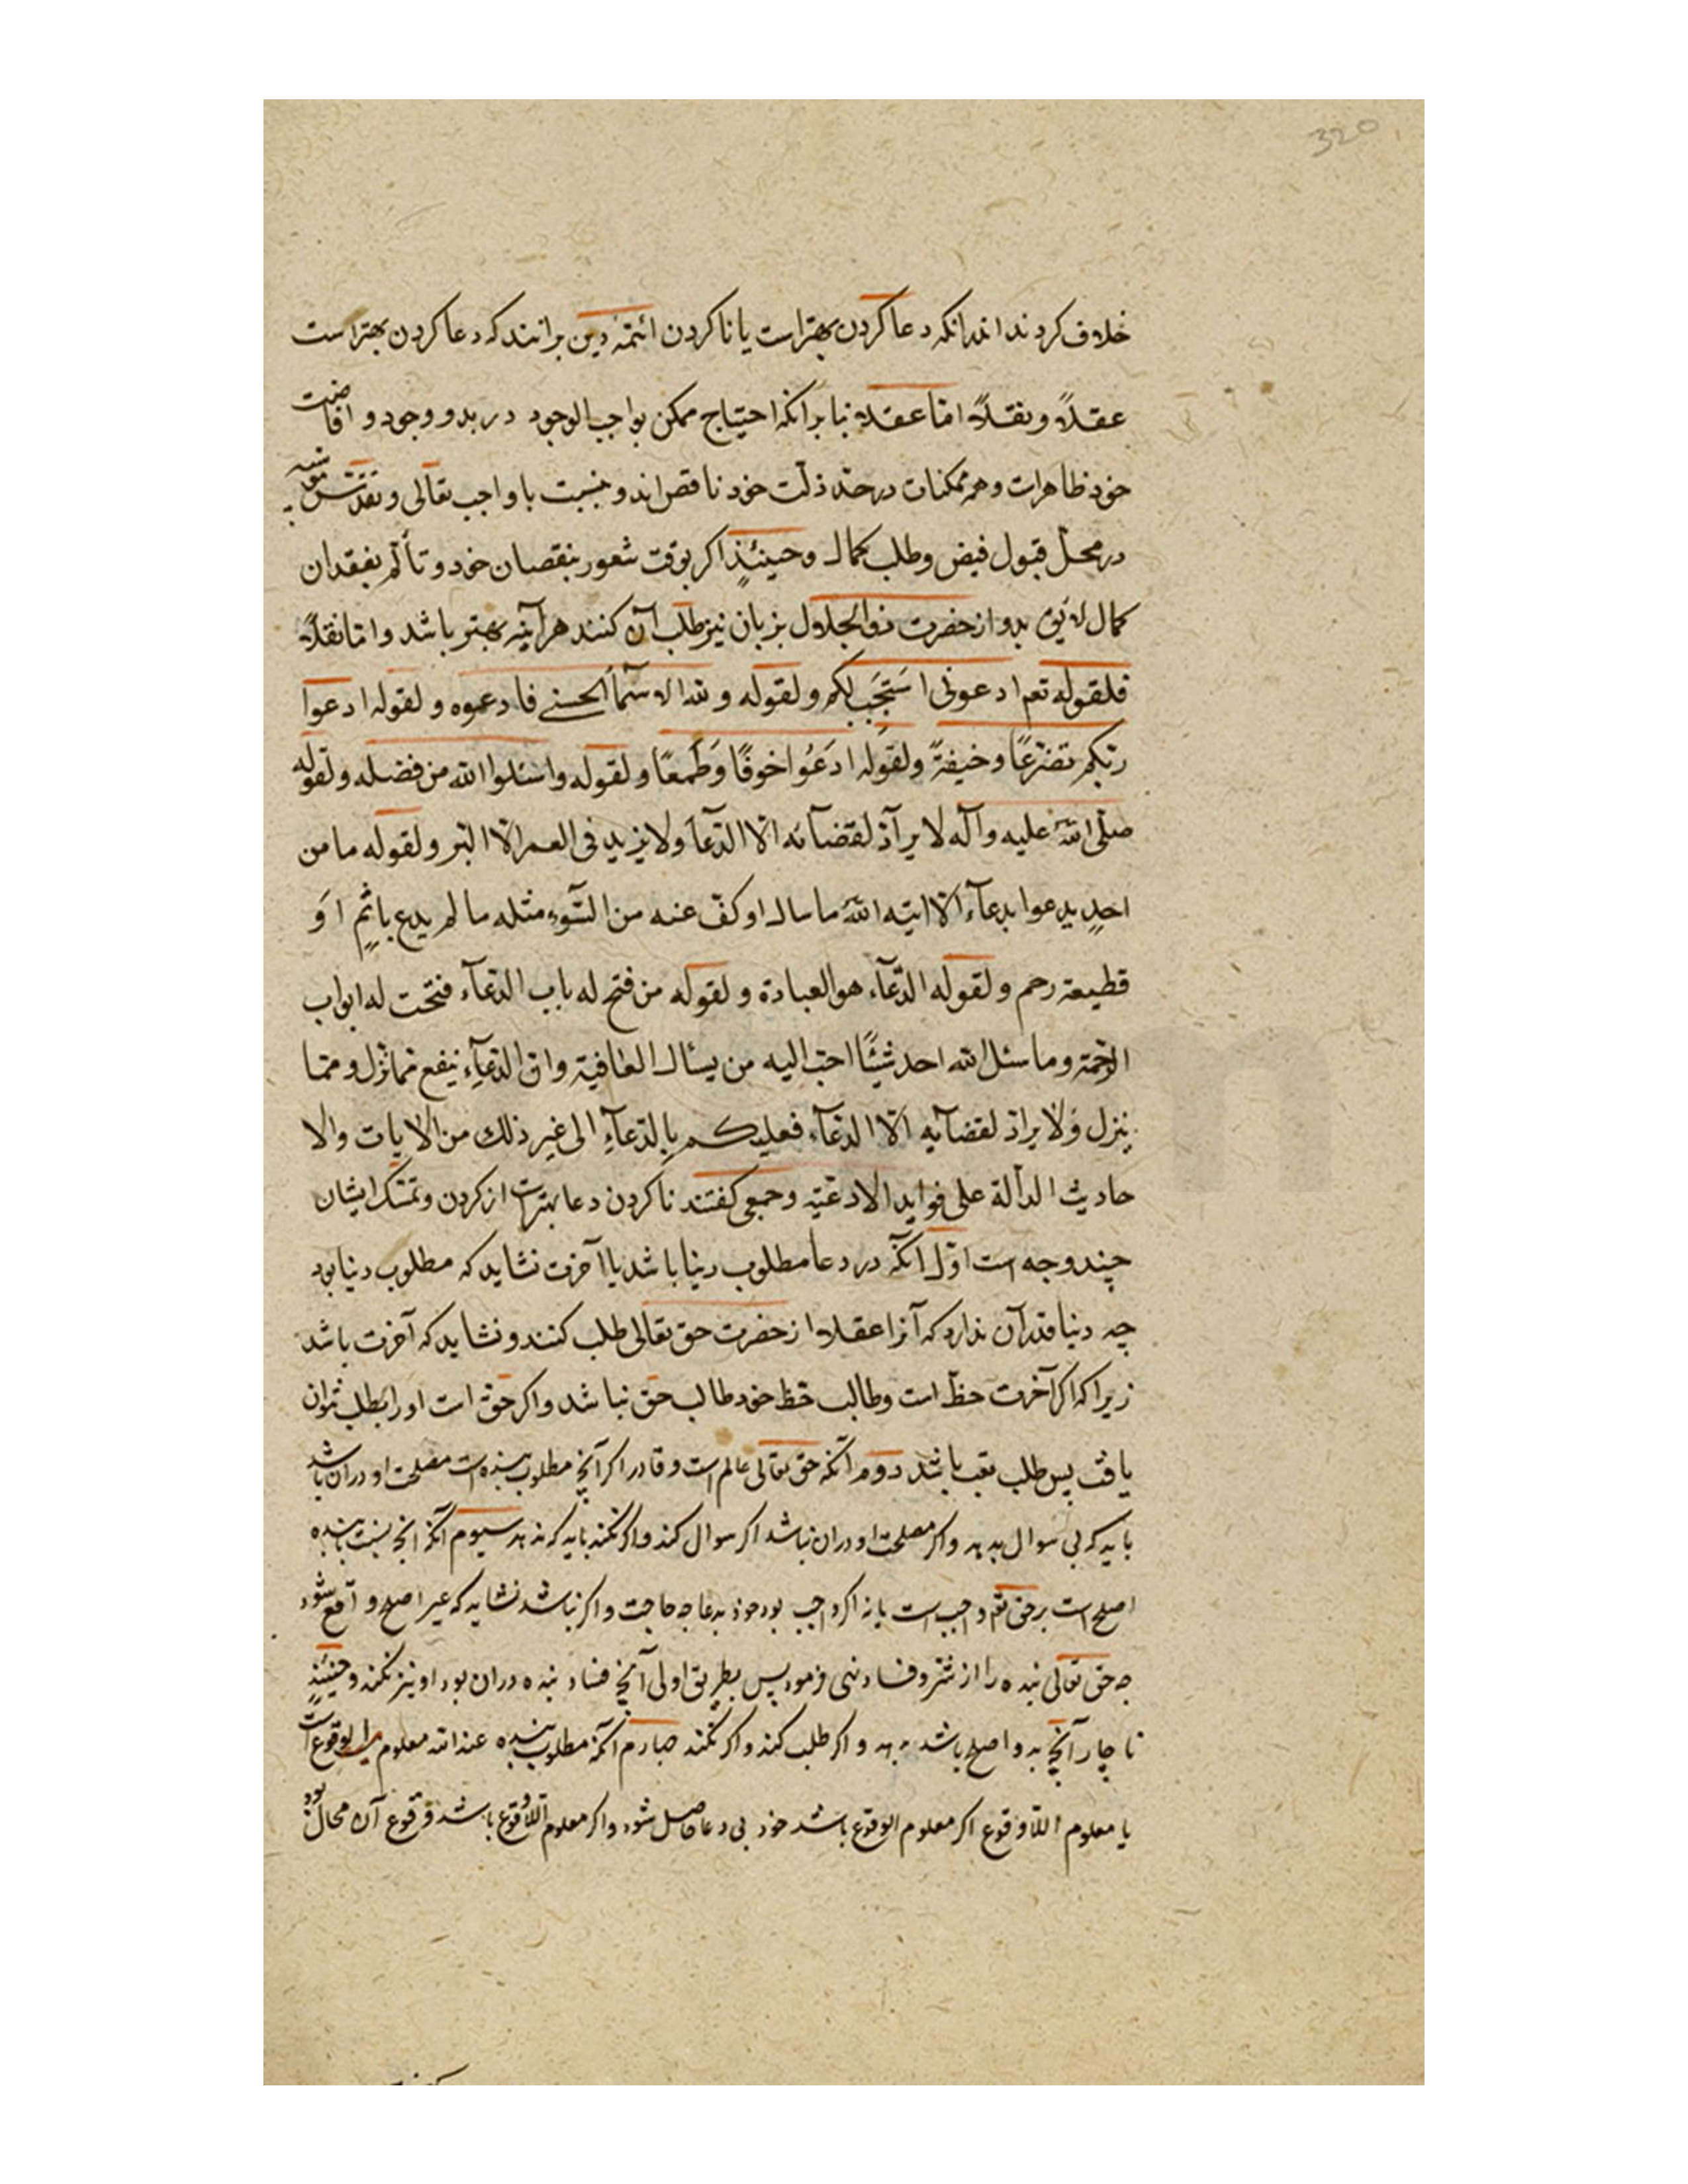 320
خلاف کردند اندرانکه دعا کردن بهتراست یا ناکردن ائمّهٔ دین برانند که دعا کردن بهتراست
عقلاً و نقلاً امّا عقلاً بنا برانکه احتیاج ممکن بواجب الوجود در بدو وجود و افاضت
خود ظاهرات و همه ممکنات در حدّ ذات خود ناقص اند و بنسبت با واجب تعالی و تقدّس
در محلّ قبول فیض و طلب کمال وحینئذٍ اکر بوقت شعور بنقصان خود و تألّم بفقدان
کمال لایق بدو از حضرت ذوالجلال بزبان نیز طلب آن کنند هرآینه بهتر باشد و امّا نقلاً
فلقوله تعم ادعونی اَستَجِب لکم ولقوله و لله الاسمآء الحسنی فادعوه و لقوله ادعوا
ربّکم تضرّعًا وخیفةً ولقوله ادعُوا خوفًا وَطَمعًا ولقوله واسئلوا الله من فضله ولقوله
صلّی الله علیه وآله لا یرآدّ لقضآئه الّا الدّعآء ولا یزید فی العمر الّا البّر ولقوله ما من
احدٍ یدعوا بدعآء الّا اتیه الله ما سال او کفّ عنه من السّوء مثله ما لم یدع باثمٍ اَو
قطیعة رحم ولقوله الدّعآء هو العبادة و لقوله من فتح له باب الدّعآء فتحت له ابواب
الرّحمة وما سئل الله احد شیئًا احبّ الیه من یسال العافیة وانّ الدّعآء ینفع ممّا نزل وممّا
ینزل وَلا یرادّ لقضآیه الّا الدعآء فعلیکم بالدّعآءِ الی غیر ذلک من الایات والا
حادیث الدآلة علی فواید الادعیّه وجمعی کفتند ناکردن دعا بهتراست از کردن وتمسّک ایشان
چند وجه است اوّل آنکه در دعا مطلوب دنیا باشد یا آخرت نشاید که مطلوب دنیا بود
چه دنیا قدر آن ندارد که آنرا عقلا از حضرت حق تعالی طلب کنند و نشاید که آخرت باشد
زیرا که اکر آخرت حظّ است وطالب حظّ خود طالب حق نباشد واکر حقّ است اورا بطلب نتوان
یافت پس طلب تعب باشد دوم آنکه حق تعالی عالم است و قادر اکر آنچ مطلوب بنده است مصلحت او دران باشد
باید که بی سوال بدهد واکر مصلحت او دران نباشد اکر سوال کند واکر نکند باید که ندهد سیوم آنکه آنچ بنسبت بابنده
اصلح است بر حق تعم واجب است یا نه اکر واجب بود خود بدعا چه حاجت واکر نباشد نشاید که غیر اصلح واقع شود
چه حق تعالی بنده را از شرّ و فساد نهی فرمود پس بطریق اولی آنچ فساد بنده دران بود او نیز نکند وحینئذٍ
ناچار آنچ بدو اصلح باشد بدهد و اکر طلب کند واکر نکند چهارم آنکه مطلوب بنده عند الله معلوم الوقوع است
یا معلوم اللّاوقوع اکر معلوم الوقوع باشد خود بی دعا حاصل شود واکر معلوم اللّاوقوع باشد وقوع آن محال بود